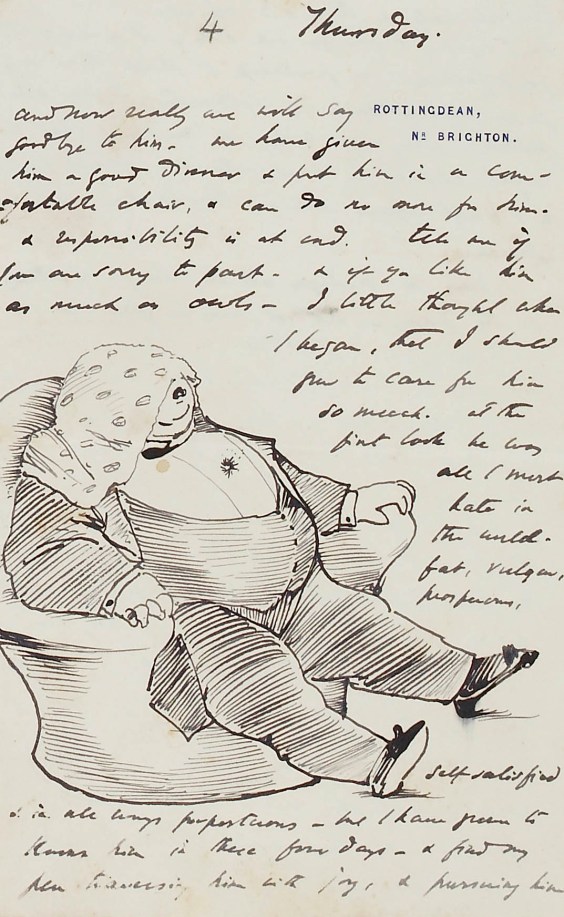 4 Thursday.
ROTTINGDEAN,
Nr. BRIGHTON.
and now really we will say
goodbye to him - we have given
him a good dinner & put him in a com-
fortable chair, & can do no more for him.
& responsibility is at end. tell me if
you are sorry to part - & if you like him
as much as owls - I little thought when
I began, that I should
grow to care for him
so much. at the
first look he was
all I most
hate in
the world.
fat, vulgar,
prosperous,
self satisfied
& in all ways preposterous - but I have grown to
know him in these four days - & find my
pen traversing him with joy, & pursuing him